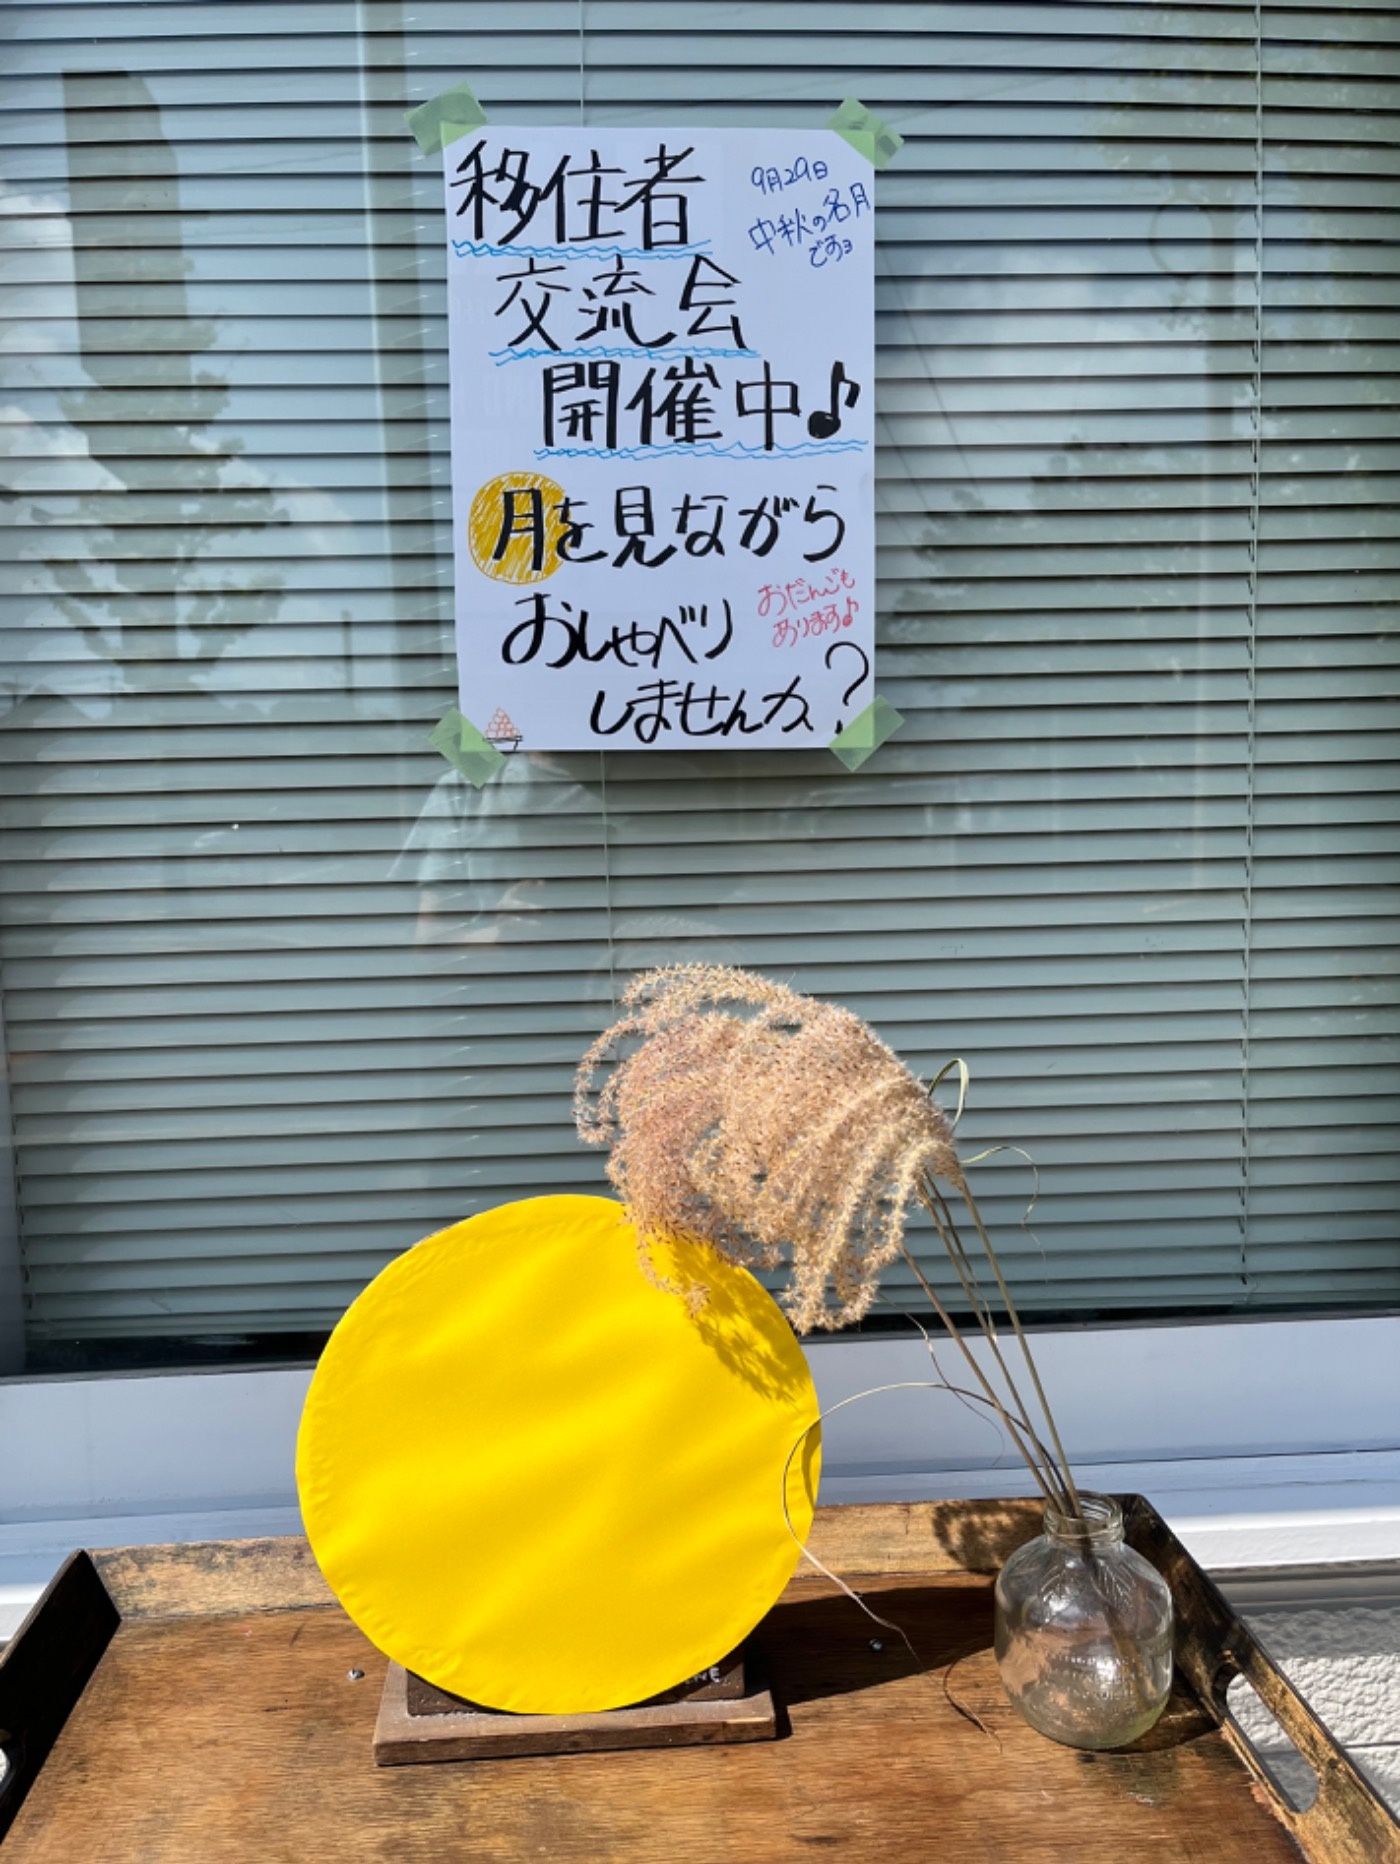 移住者
9月29日
中秋の名月
ですョ
交流会
開催中♪
月を見ながら
おだんごも
あります♪
おしゃべり
しませんか?